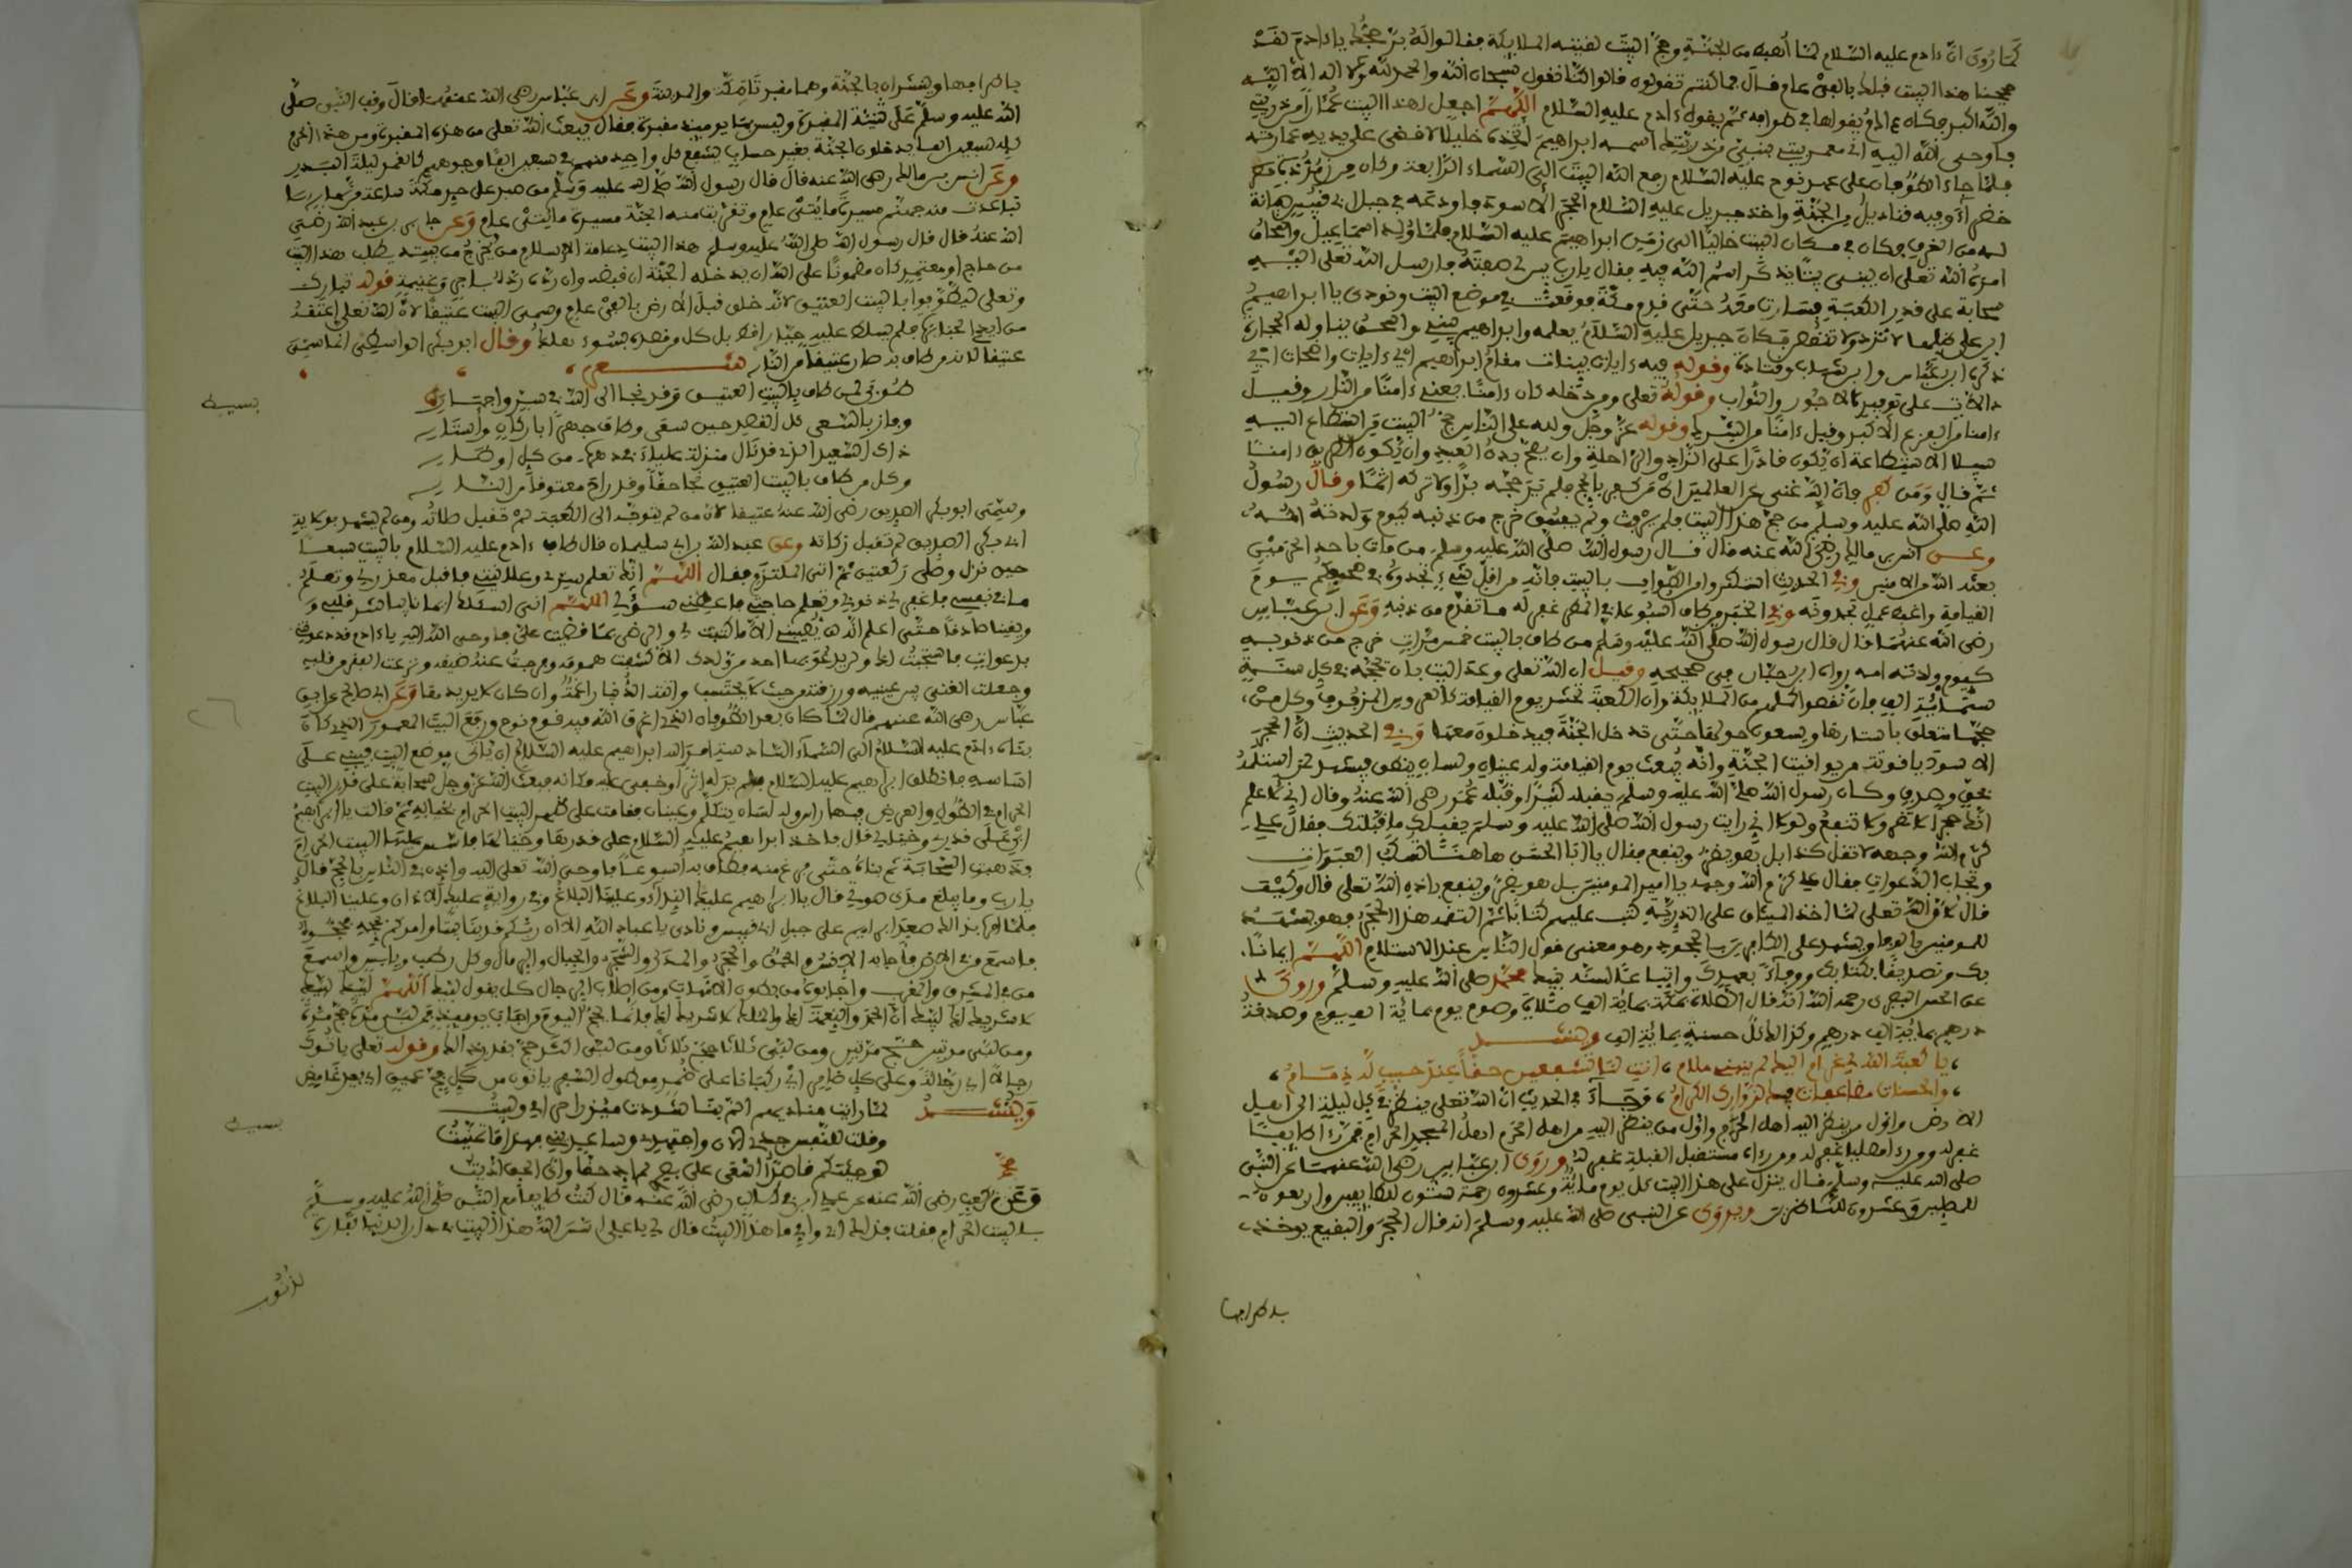 كما روى انّ ءادم عليه السّلام لمّا أهبط من الجنّة وحجّ البيت لفيته الملايكة فقالوا له برّ حجّك ياءادم لقد
حججنا هذا البيت قبلك بالفي عام فال بما كنتم تقولون فالوا كنّا نقول سبحان الله والحمد لله ولا اله الا الله
والله اكبر فكان ءادم يقولها في طوافه ثم يقول ءادم عليه السّلام اللهمّ اجعل لهذا البيت عُمّارا من ذريتي
فاوحى الله اليه اني معمر بيتي بنبي من ذريتك اسمه ابراهيم اتخذه خليلا افضي على يديه عمارته
فلمّا جاء الطوفان على عهد نوح عليه السّلام رفع الله البيت الى السّماء الرّابعة وكان من زمردة
خضراء وفيه قناديل من الجنّة واخذ جبريل عليه السّلام الحجر الاسود فاودعه في جبل ابي قبيس صيانة
له من الغرق فكان مكان البيت خاليا الى زمن ابراهيم عليه السّلام فلمّا ولد اسماعيل واسحاق
امره الله تعلى ان يبني بيتا يذكر اسم الله فيه فقال يارب بين لي صفته فارسل الله تعلى اليه
سحابة على قدر الكعبة فسارت معه حتّى قدم مكة فوقفت في موضع البيت ونودي يا ابراهيم
ابن على ظلها لا تزد ولا تنقص فكان جبريل عليه السّلام يعلمه وابراهيم يبني واسحق يناوله الحجارة
ذكره ابن عبّاس وابن وقتادة وقوله فيه ءايات بينات مقام ابراهيم اي ءايات واضحات
على توفير الاجور والثواب وقوله تعلى ومن دخله كان ءامنا يعني ءامنا من النّار وفيل
ءامنا من الفزع الاكبر وفيل ءامنا من الشرك وقوله عزّ وجلّ ولله على النّاس حجّ البيت من استطاع اليه
سبيلا الاستطاعة ان يكون قادرا على الزّاد والرّاحلة وان يصحّ بدن العبد وان يكون الطريق ءامنا
ثم فال ومن كفر فان الله غني عن العالمين اي من كفر بالحج فلم ير حجّه برّا ولا تركه اثما وقال رسول
الله صلى الله عليه وسلم من حج هذا البيت فلم يرفث ولم يفسق خرج من ذنبه كيوم ولدته امّه
وعن انس بن مالك رضي الله عنه قال فال رسول الله صلّى الله عليه وسلم من مات باحد الحرمين
بعثه الله من الامنين وفي الحديث استكثروا من الطواف بالبيت فانه من اقلّ شيء تجدونه في صحفكم يوم
القيامة واغبط عمل تجدونه وفي الخبر من طاف اسبوعا في المطر غفر له ما تقدم من ذنبه وعن ابن عبّاس
رضي الله عنهما قال فال رسول الله صلى الله عليه وسلم من طاف بالبيت خمس مرّات خرج من ذنوبه
كيوم ولدته امه رواه ابن حبّان في صحيحه وفيل ان الله تعلى وعد البيت بان يحجّه في كل سنة
ستّماية الف فان نقصوا كملهم من الملايكة وان الكعبة تحشر يوم القيامة كالعروس المزفوفة وكل من
حجها متعلق باستارها ويسعون حولها حتى تدخل الجنّة فيدخلون معها وفي الحديث انّ الحجر
الاسود ياقوتة من يواقيت الجنّة وانّه يبعث يوم القيامة وله عينان ولسان ينطق فيشهد لمن استلمه
بحق وصدق وكان رسول الله صلّى الله عليه وسلم يقبله كثيرا وقبله عمر رضي الله عنه وقال اني لاعلم
انك حجر لا تضر ولا تنفع ولولا اني رايت رسول الله صلى الله عليه وسلم يقبلك ما قبّلتك فقال علي
كرّم الله وجهه لا تقل كذا بل هو يضر وينفع فقال يا ابا الحسن هاهنا تسكب العبرات
وتجاب الدعوات فقال علي كرّم الله وجهه يا امير المومنين بل هو يضرّ وينفع باذن الله تعلى قال وكيف
قال لانّ الله تعلى لمّا اخذ الميثاق على الذّرية كتب عليهم كتابا ثم القمه هذا الحجر فهو يشهد
للمومنين بالوفا ويشهد على الكافرين بالجحود وهو معنى قول النّاس عند الاستلام اللهمّ ايمانا
بك وتصديقا بكتابك ووفاء بعهدك واتباعا لسنة نبيك محمّد صلى الله عليه وسلم وروى
عن الحسن البصري رحمه الله انه قال الصّلاة بمكة بماية الف صلاة وصوم يوم بماية الف يوم وصدقة
درهم بماية الف درهم وكذالك كل حسنة بماية الف وينشد
يا كعبة الله لي غرام اليك لم يثنه ملام انت لنا تشفعين حقا عند حبيب له ذمام
والحسنات مضاعفات لزوارك الكرام وجاء في الحديث انّ الله تعلى ينظر في كل ليلة الى اهل
الارض واول من ينظر اليه اهل الحرم واول من ينظر اليه من اهل الحرم اهل المسجد الحرام فمن رءاه طايفا
غفر له ومن رءاه مصليا غفر له ومن رءاه مستقبل القبلة غفر له وروى ابن عبّاس رضي الله عنهما عن النّبي
صلى الله عليه وسلم فال ينزل على هذا البيت كل يوم ماية وعشرون رحمة ستّون للطايفين واربعون
للمصلين وعشرون للنّاظرين ويروى عن النّبي صلى الله عليه وسلم انه قال الحجر والبقيع يوخذ
باطرافها
باطرافها وينشران بالجنّة وهما مقبرتا مكة والمدينة وعن ابن عبّاس رضي الله عنهما قال وقف النّبي صلّى
الله عليه وسلم على ثنيّة المقبرة وليس بها يوميذ مقبرة فقال يبعث الله تعلى من هذه المقبرة ومن هذا الحرم
كله سبعين الفا يدخلون الجنّة بغير حساب يشفع كل واحد منهم في سبعين الفا وجوههم كالقمر ليلة البدر
وعن انس بن مالك رضي الله عنه قال قال رسول الله صلى الله عليه وسلم من صبر على حر مكة ساعة من نهار
تباعدت منه جهنّم مسيرة مايتي عام وتقربت منه الجنّة مسيرة مايتي عام وعن جابر بن عبد الله رضي
الله عنه قال قال رسول الله صلى الله عليه وسلم هذا البيت دعامة الاسلام من خرج من بيته يطلب هذا البيت
من حاج او معتمر كان مضمونا على الله ان يدخله الجنّة ان قبضه وان ردّه ردّه باجر وغنيمة قوله تبارك
وتعلى وليطوّفوا بالبيت العتيق لانّه خلق قبل الارض بالفي عام وسمي البيت عتيقا لانّ الله تعلى اعتقه
من ايدي الجبابرة فلم يسلط عليه جبّار قط بل كل من قصده بسوء هلك وقال ابو بكر الواسطي انما سمي
عتيقا لانّ من طاف به صار عتيقا من النّار شعر
طوبى لمن طاف بالبيت العتيق وقد نجا الى الله في سرّ واجهار
وفاز بالسّعي كل القصد حين سعى وطاف جهرا باركان واستار
ذاك السّعيد الذي قد نال منزلة علياء في دهره من كل اوطار
وكل من طاف بالبيت العتيق نجا حقا وقد راح معتوقا من النّار
وسمّى ابو بكر الصديق رضي الله عنه عتيقا لانّ من لم يتوجّه الى الكعبة لم تقبل صلاته ومن لم يشهد بولاية
ابي بكر الصديق لم تقبل زكاته وعن عبد الله بن ابي سليمان قال طاف ءادم عليه السّلام بالبيت سبعا
حين نزل وصلى ركعتين ثم اتى الملتزم فقال اللهمّ انك تعلم سرّي وعلانيتي فاقبل معذرتي وتعلم
ما في نفسي فاغفر لي ذنوبي وتعلم حاجتي فاعطني سؤلي اللهمّ اني اسئلك ايمانا يباشر قلبي و
ويقينا صادقا حتّى اعلم انّه لن يصيبني الا ما كتبت لي والرضى بما قضيت علي فاوحى الله اليه ياءادم قد دعوتني
بدعوات فاستجبت لك ولن يدعوني بها احد من ولدك الا كشفت همومه وفرجت عنه ضيقه ونزعت الفقر من قلبه
وجعلت الغنى بين عينيه ورزقته من حيث لا يحتسب واتته الدّنيا راغمة وان كان لا يريدها وعن ابي صالح عن ابن
عبّاس رضي الله عنهم قال لمّا كان بعد الطوفان الذي اغرق الله فيه قوم نوح ورفع البيت المعمور الذي كان
بناه ءادم عليه السّلام الى السّماء السّادسة امر الله ابراهيم عليه السّلام ان ياتي موضع البيت فيبني على
اساسه فانطلق ابراهيم عليه السّلام فلم ير له اثرا وخفي عليه مكانه فبعث الله عزّ وجلّ سحابة على قدر البيت
الحرام في الطول والعرض فيها راس وله لسان يتكلم وعينان فقامت على ظهر البيت الحرام بحياله ثم قالت يا ابراهيم
ابن على قدري وحيالي قال فاخذ ابراهيم عليه السّلام على قدرها وحيالها فاسّس عليها البيت الحرام
وذهبت السّحابة ثم بناه حتّى فرغ منه فطاف به اسبوعا فاوحى الله تعلى اليه واذن في النّاس بالحجّ قال
يارب وما يبلغ مدى صوتي قال يا ابراهيم عليك النداء وعلينا البلاغ وفي رواية عليك الاذان وعلينا البلاغ
فلما امر بذالك صعد ابراهيم على جبل ابي قبيس ونادى يا عباد الله الا ان ربّكم قد بنى بيتا وامركم بحجّه فحجّوه
فاسمع من في الارض فاجابه الانس والجنّ والحجر والمدر والشّجر والجبال والرمال وكل رطب ويابس واسمع
من في المشرق والمغرب واجابوه من بطون الامّهات ومن اصلاب الرّجال كل يقول لبّيك اللهمّ لبّيك لبّيك
لا شريك لك لبّيك انّ الحمد والنّعمة لك والملك لا شريك لك فانّما يحجّ اليوم من اجاب يوميذ فمن لبّى مرّة حجّ مرّة
ومن لبّى مرتين حجّ مرتين ومن لبّى ثلاثا حجّ ثلاثا ومن لبّى اكثر حجّ بقدر ذالك وقوله تعلى ياتوك
رجالا اي رجّالة وعلى كل ضامر اي ركبانا على ضمر من طول السّفر ياتون من كل فجّ عميق اي بعد غامض
وينشد لما رايت مناديهم الم بنا شددت ميزر احرامي ولبيت
وقلت للنّفس جدّي الان واجتهدي وساعديني فهذا ما تمنّيت
لو جيتكم قاصدا اسعى على بصري لم اقض حقّا واي الحق ادّيت
وعن رضي الله عنه عن علي ابن ابي طالب رضي الله عنه قال كنت طايفا مع النّبي صلّى الله عليه وسلم
بالبيت الحرام فقلت فداك ابي وامي ما هذا البيت قال لي يا علي اسّس الله هذا البيت في دار الدنيا كفّارة
لذنوب
بسيط
بسيط
٢٦